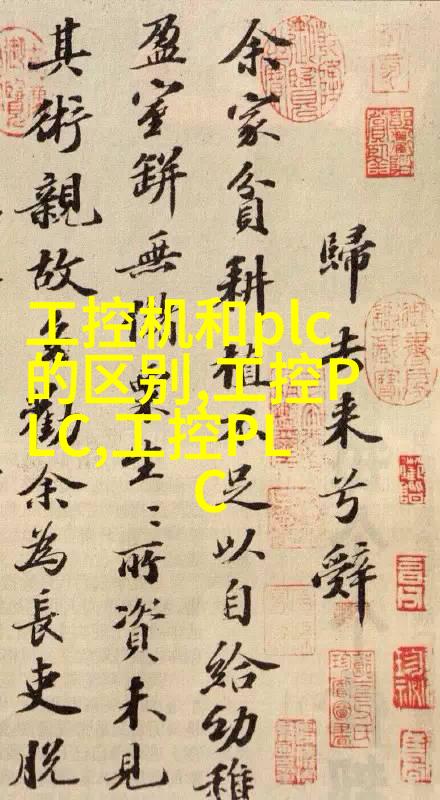 工控机和plc
的区别,工控P
LC,工控PL
C
歸去来兮辭
余家貧耕植不足以自給幼稚
盈室缾無儲粟生〻所資未見
其術親故多勸余為長吏脫